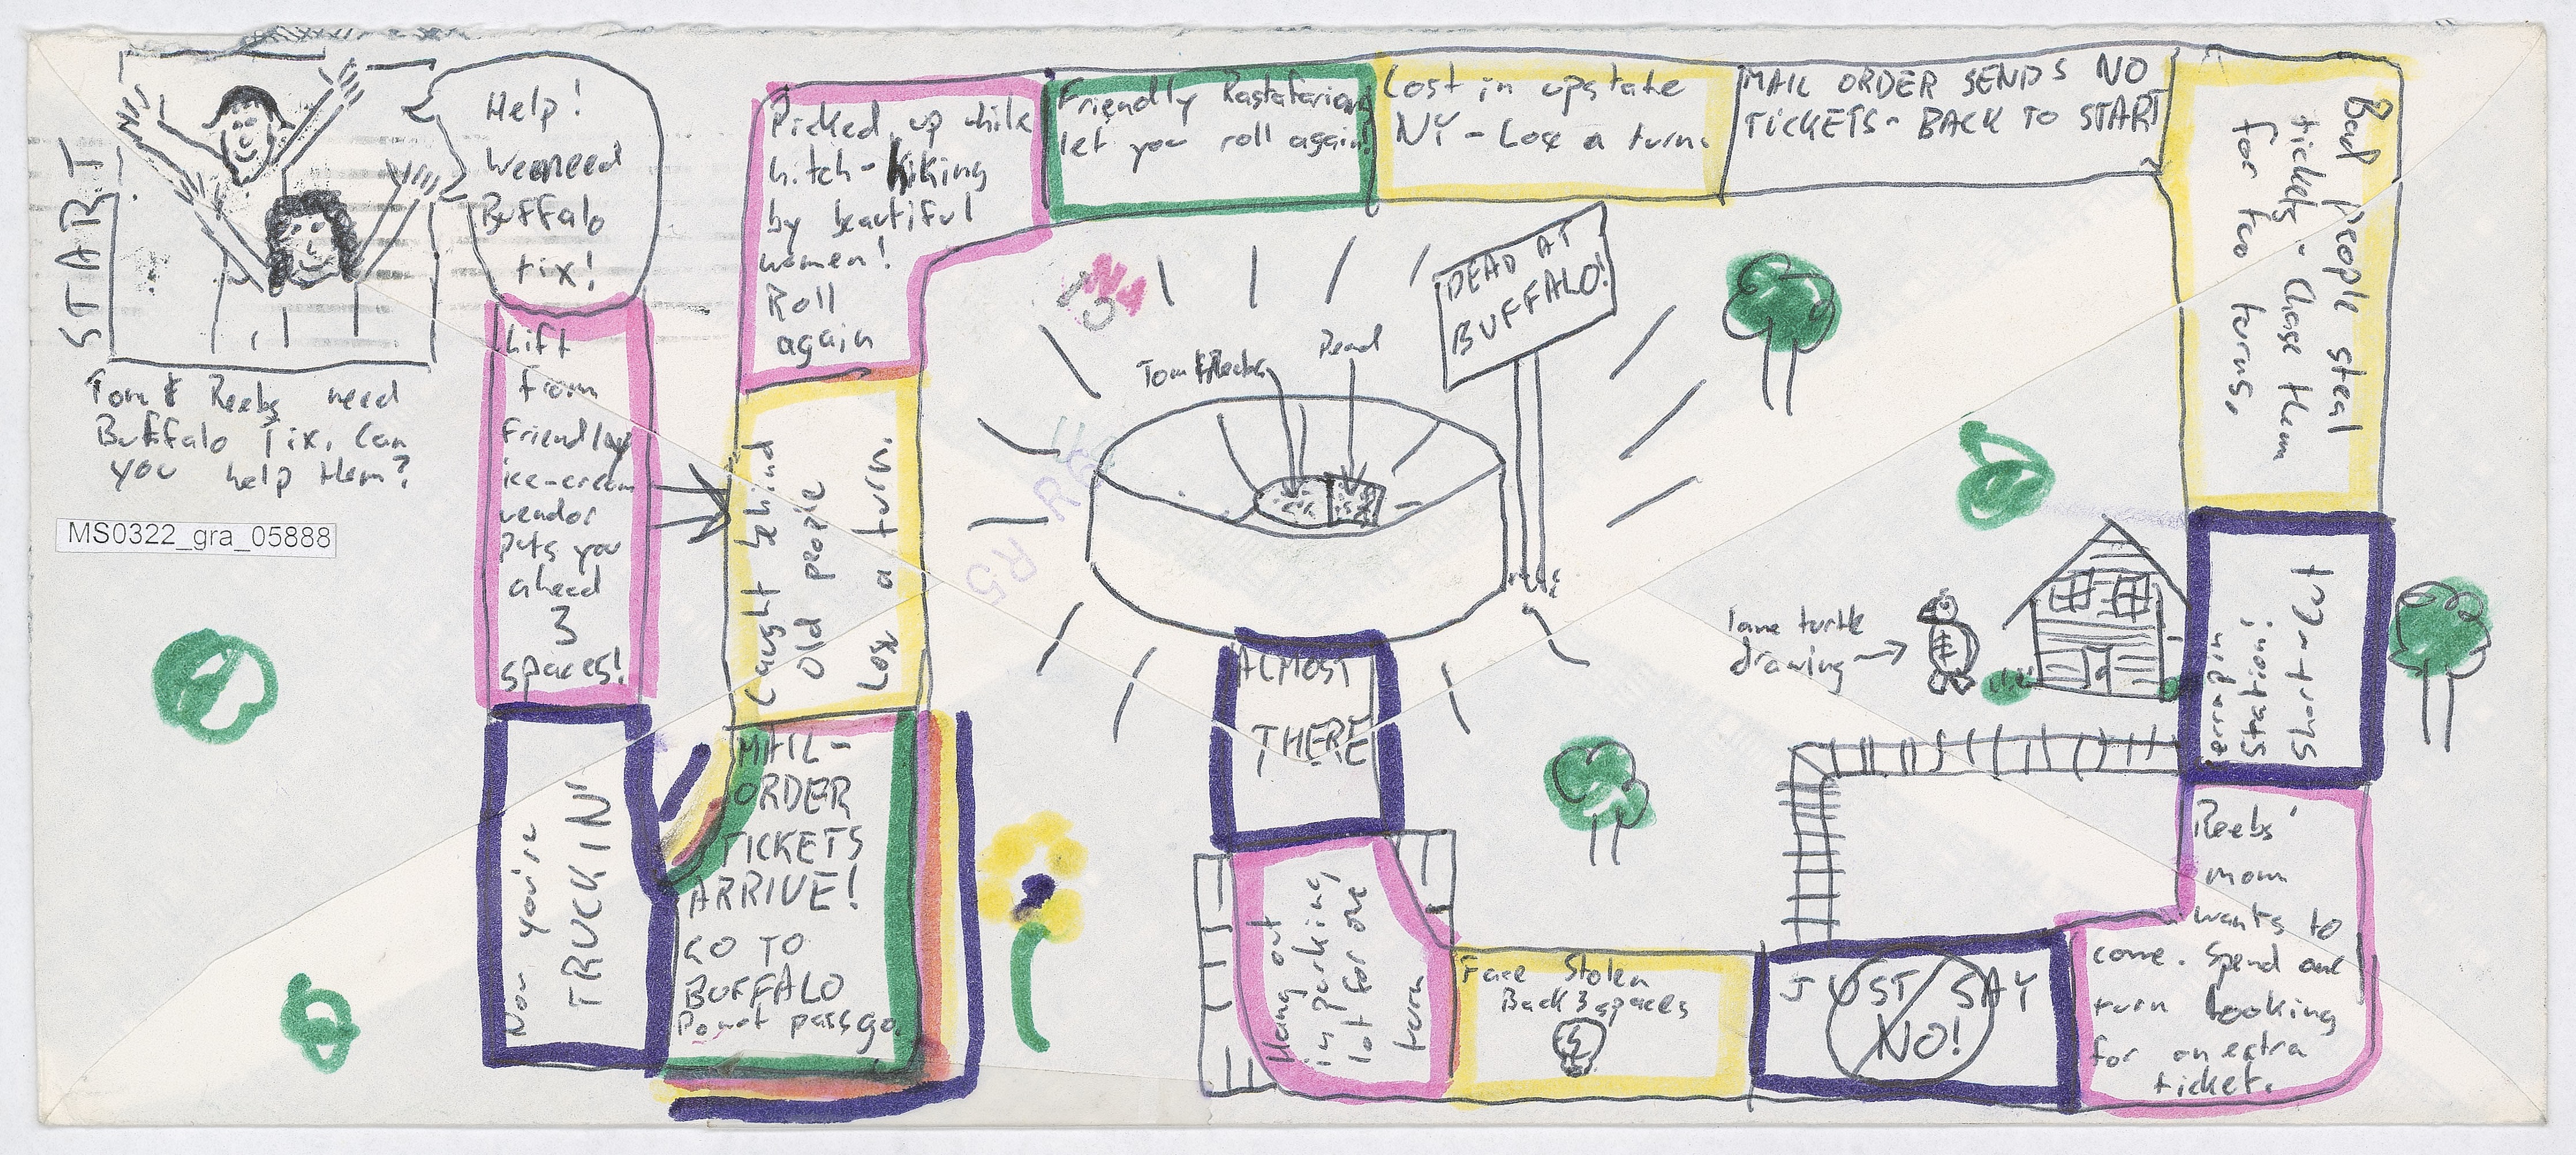 START
Help!
We need
Buffalo
tix!
Tom & Reebs need
Buffalo Tix. Can
you help them?
MS0322_gra_05888
Lift
from
friendly
ice-cream
vendor
puts you
ahead
3
spaces!
Now you're
TRUCKIN'
MAIL-
ORDER
TICKETS
ARRIVE!
GO TO
BUFFALO
Do not pass go.
Caught behind
old people
Lose a turn.
Picked up while
hitch-hiking
by beautiful
women!
Roll
again
Friendly Rastafarians
let you roll again!
Lost in upstate
NY - Lose a turn.
MAIL ORDER SENDS NO
TICKETS - BACK TO START
Bad people steal
tickets - Chase them
for two turns.
Short-cut
station!
terrapin
lame turtle
drawing
Reebs'
mom
wants to
come. Spend one
turn looking
for an extra
ticket.
JUST SAY
NO!
Face Stolen
Back 3 spaces
Hang out
in parking
lot for one
turn
ALMOST
THERE
Tom & Reebs
Dead
DEAD AT
BUFFALO!